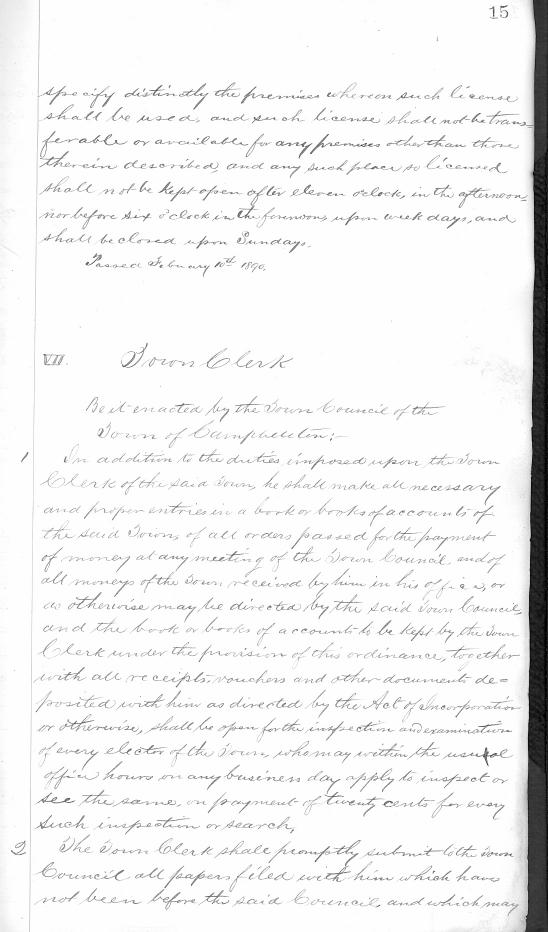 15
specify distinctly the premises whereon such license
shall be used, and such license shall not be trans=
ferable or available for any premises other than those
therein described, and any such place so licensed
shall not be kept open after eleven o'clock, in the afternoon
nor before six o'clock in the forenoon, upon week days, and
shall be closed upon Sundays.
Passed February 10th 1890.
VII. Town Clerk
Be it enacted by the Town Council of the
Town of Campbellton:-
1 In addition to the duties imposed upon the Town
Clerk of the said Town, he shall make all necessary
and proper entries in a book or books of accounts of
the said Town, of all orders passed for the payment
of money at any meeting of the Town Council, and of
all moneys of the Town received by him in his office, or
as otherwise may be directed by the said Town Council,
and the book or books of accounts to be kept by the Town
Clerk under the provision of this ordinance, together
with all receipts, vouchers and other documents de=
posited with him as directed by the Act of Incorporation
or otherwise, shall be open for the inspection and examination
of every elector of the Town, who may within the usual
office hours on any business day apply to inspect or
see the same, on payment of twenty cents for every
such inspection or search,
2 The Town Clerk shall promptly submit to the Town
Council all papers filed with him which have
not been before the said Council, and which may